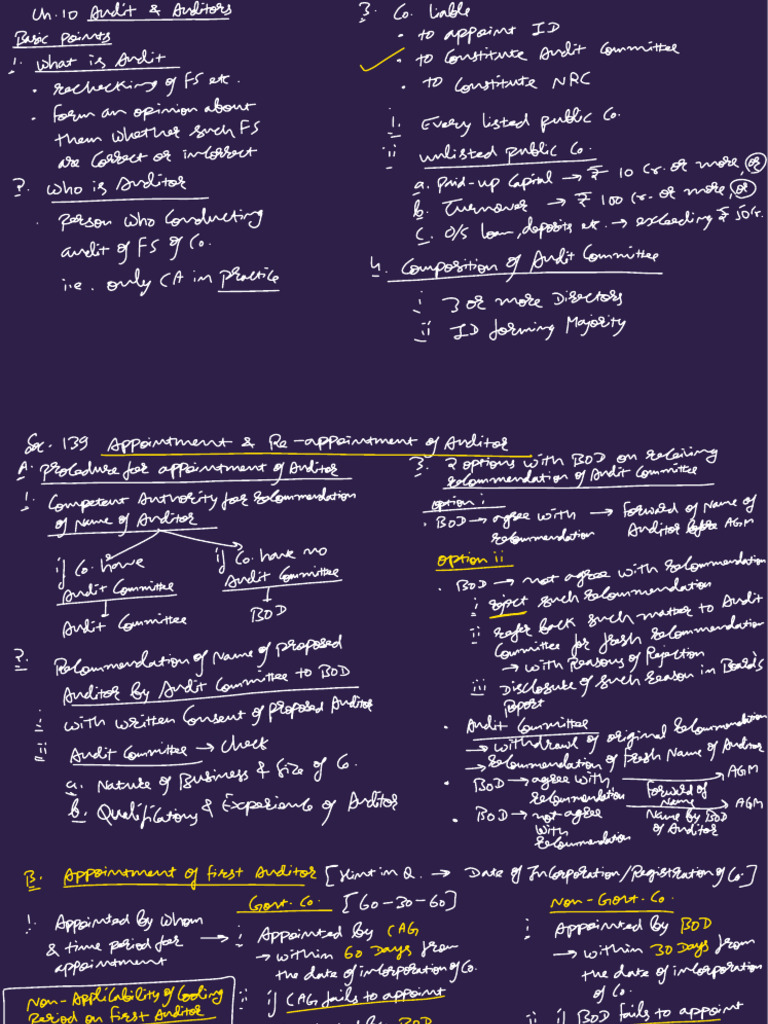 Ch.10 Audit & Auditors
Basic points
1. What is Audit
• rechecking of FS etc.
• form an opinion about
them whether such FS
are correct or incorrect
2. Who is Auditor
• Person who conducting
audit of FS of Co.
i.e. only CA in practice
3. Co. liable
• to appoint ID
• to constitute Audit Committee
• to constitute NRC
i. Every listed public Co.
ii unlisted public Co.
a. Paid-up Capital → ₹ 10 Cr. or more, or
b. Turnover → ₹ 100 Cr. or more, or
c. O/S loan, deposits etc. → exceeding ₹ 50 Cr.
4. Composition of Audit Committee
i 3 or more Directors
ii ID forming Majority
Sec. 139 Appointment & Re-appointment of Auditor
A. Procedure for appointment of Auditor
1. Competent Authority for recommendation
of Name of Auditor
if Co. have
Audit Committee
↓
Audit Committee
if Co. have no
Audit Committee
↓
BOD
2. Recommendation of Name of proposed
Auditor by Audit Committee to BOD
i with written Consent of proposed Auditor
ii Audit Committee → check
a. Nature of Business & Size of Co.
b. Qualification & Experience of Auditor
3. 2 options with BOD on receiving
recommendation of Audit Committee
option i
• BOD → agree with → Forward of Name of
recommendation Auditor AGM
option ii
• BOD → not agree with recommendation
i reject such recommendation
ii refer back such matter to Audit
Committee for fresh recommendation
→ with Reasons of Rejection
iii Disclosure of such reason in Board's
Report
• Audit Committee
→ withdrawl of original recommendation
→ recommendation of fresh Name of Auditor
• BOD → agree with → AGM
recommendation Forward of
Name
• BOD → not agree → AGM
with Name by BOD
recommendation of Auditor
B. Appointment of first Auditor [Hint in Q. → Date of Incorporation/Registration of Co.]
Govt. Co. [60-30-60]
Non-Govt. Co.
1. Appointed by whom
& time period for
appointment
→ i Appointed by CAG
→ within 60 Days from
the date of incorporation of Co.
ii if CAG fails to appoint
by BOD
i Appointed by BOD
→ within 30 Days from
the date of incorporation
of Co.
ii if BOD fails to appoint
Non-Applicability of Cooling
Period on First Auditor